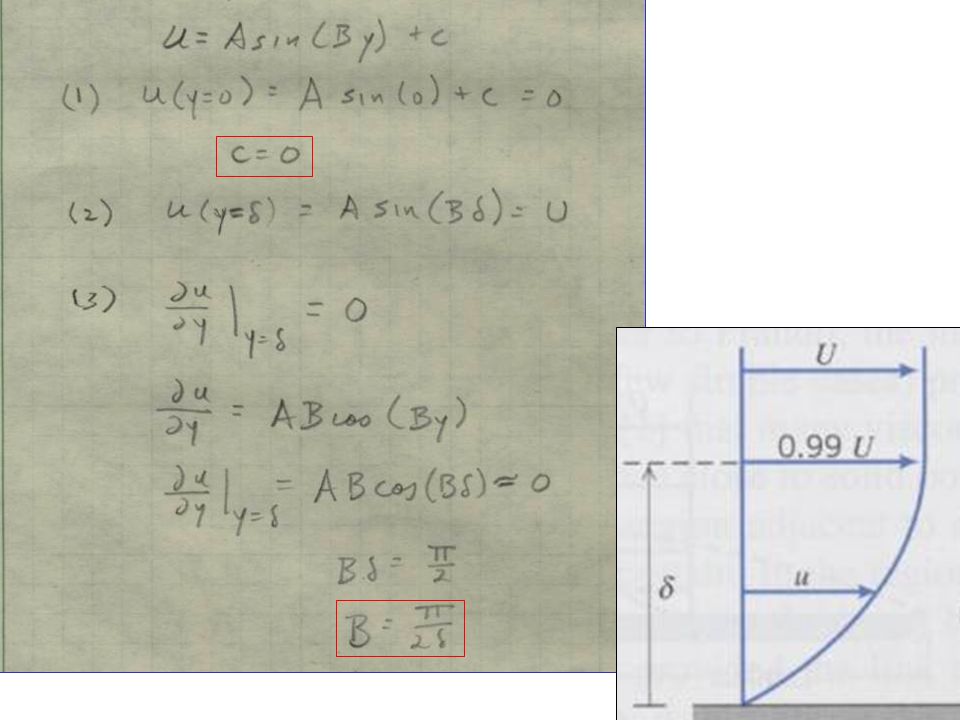 u = A sin(By) + c
(1) u(y=0) = A sin(0) + c = 0
c = 0
(2) u(y=δ) = A sin(Bδ) = U
(3) ∂u/∂y |y=δ = 0
∂u/∂y = AB cos(By)
∂u/∂y |y=δ = AB cos(Bδ) ≈ 0
Bδ = π/2
B = π/2δ
U
0.99 U
δ
u